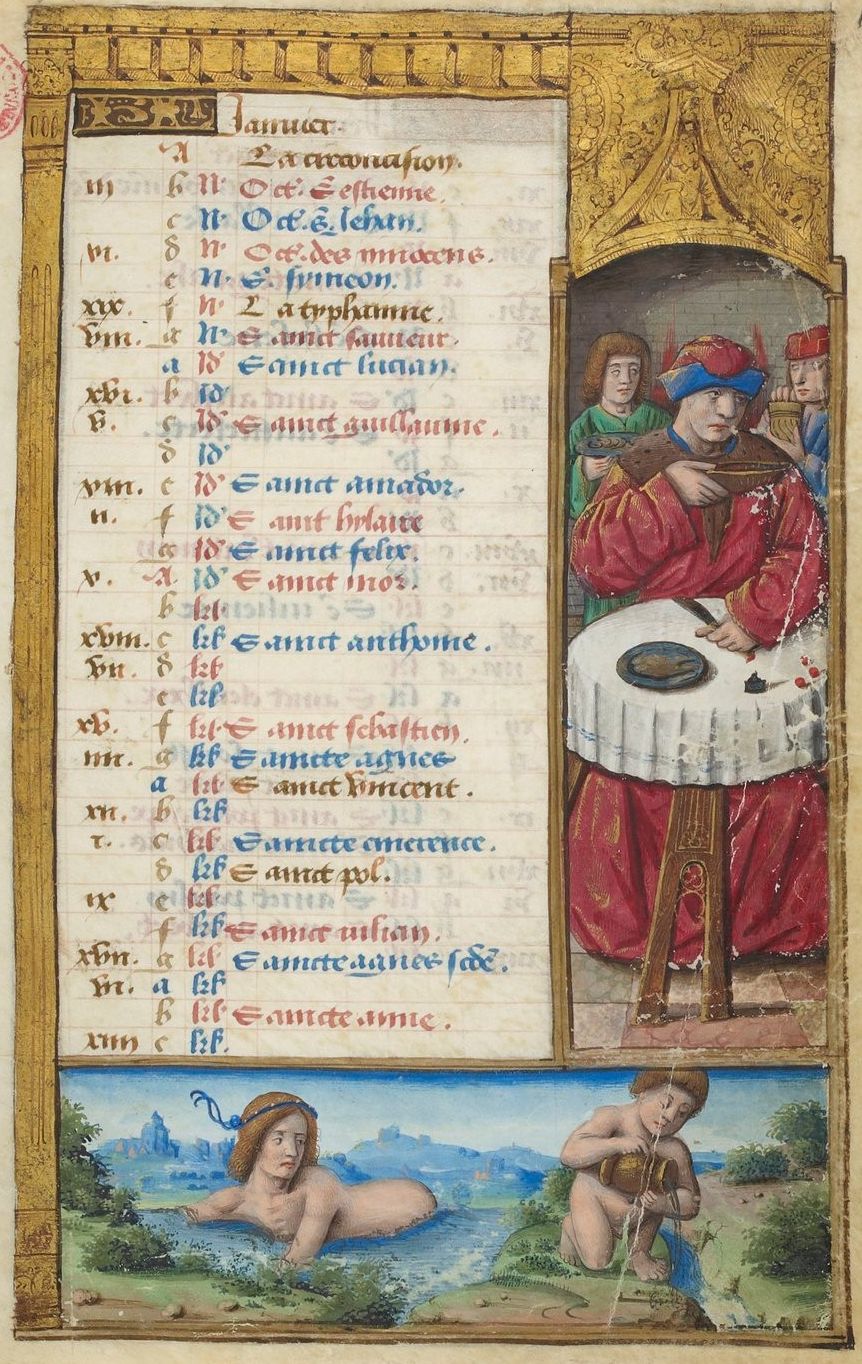 Januier
A La circoncision.
iii b N Oct. S estienne.
c N Oct. S. Jehan.
vi. d N Oct. des innocens.
e N S. symeon.
xix. f N La typhanne.
viii. g N Sainct sauueur.
a Id Sainct lucian.
xvi. b Id
v. c Id Sainct guillaume.
d Id
viii. e Id Sainct amador.
ii. f Id Saint hylaire
g Id Sainct felix.
v. A Id Sainct mor.
b kl
xviii. c kl Sainct anthoine.
vii. d kl
e kl
xv. f kl Sainct sebastien.
iiii. g kl Saincte agnes
a kl Sainct Vincent.
xii. b kl
i. c kl Saincte emerence.
d kl Sainct pol.
ix e kl
f kl Sainct iulian.
xvii. g kl Saincte agnes scde.
vi. a kl
b kl Saincte anne.
xiiii c kl.